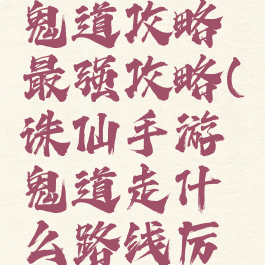 鬼道攻略
最强攻略(
诛仙手游
鬼道走什
么路线厉